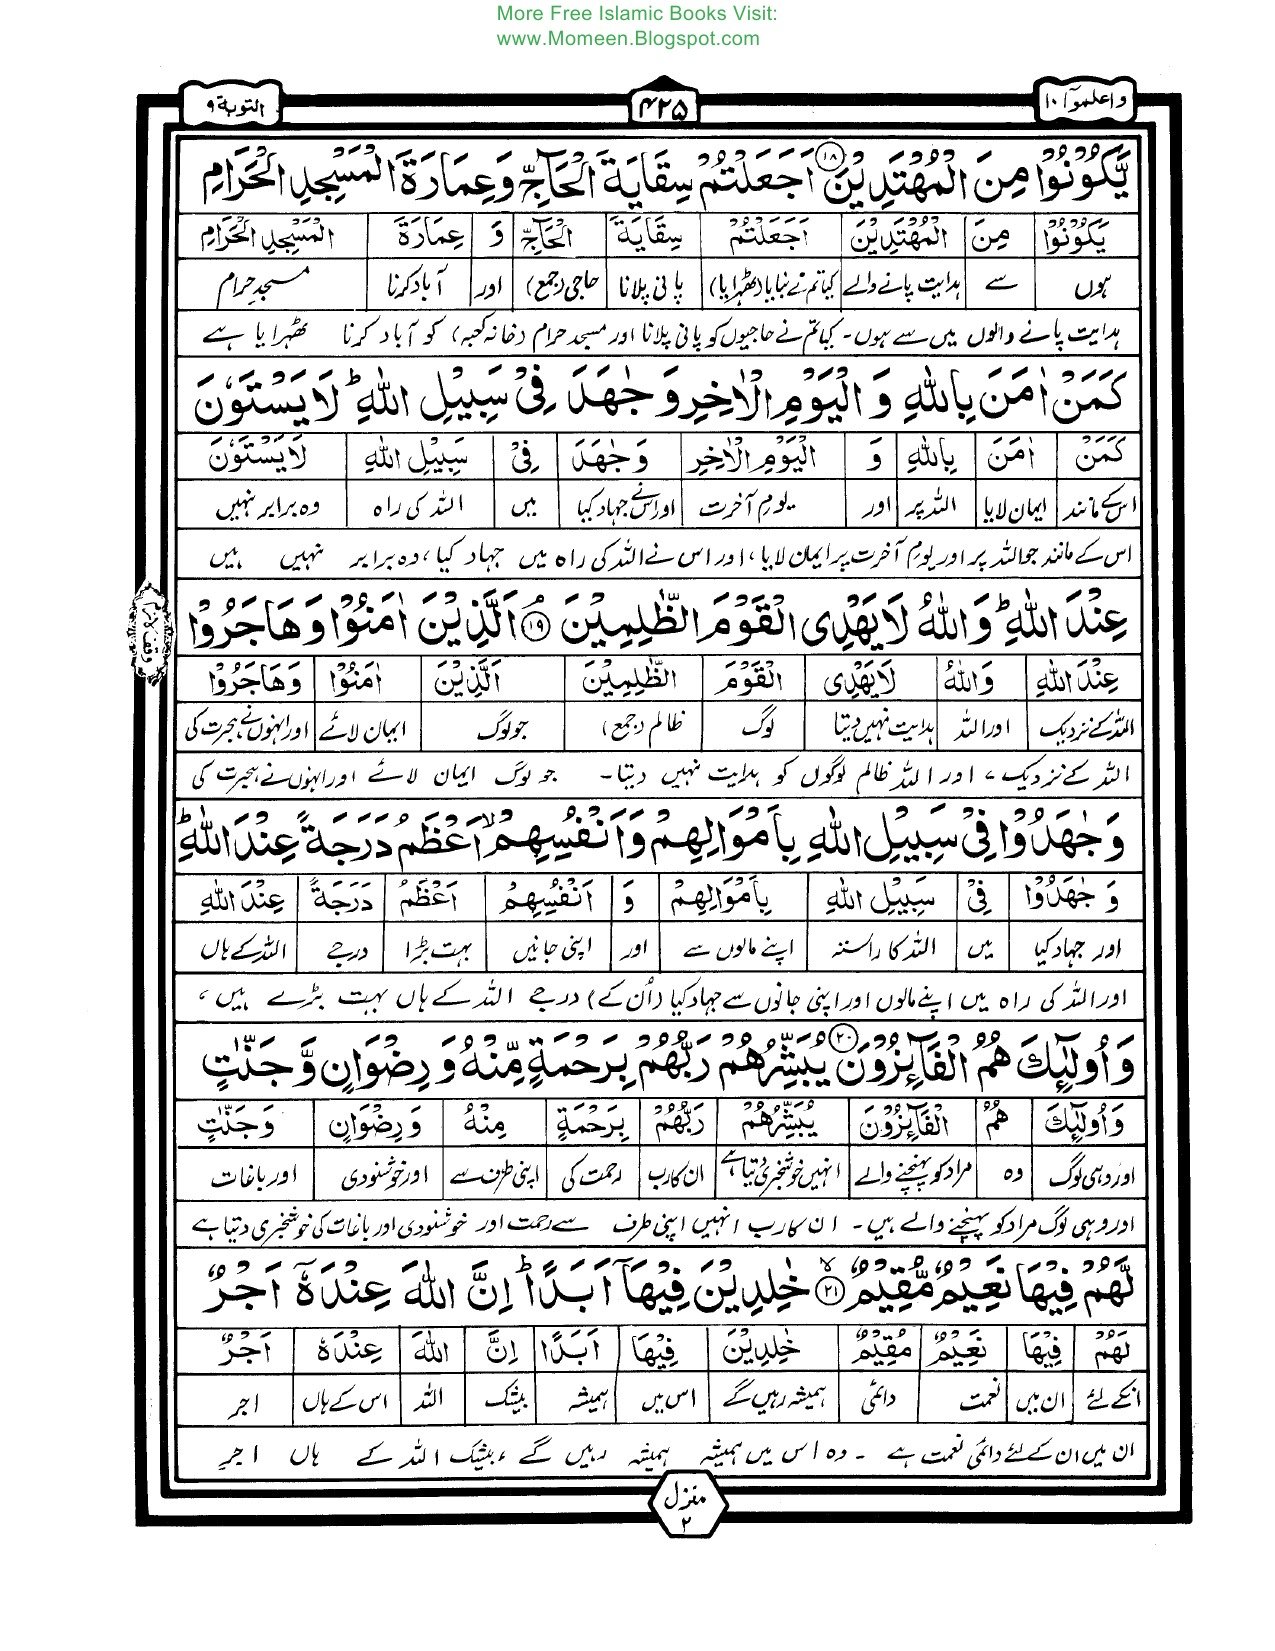 More Free Islamic Books Visit:
www.Momeen.Blogspot.com
واعلموٓا ۱۰
۴۲۵
التوبة ۹
يَّكُوْنُوْا مِنَ الْمُهْتَدِيْنَ ۱۸ اَجَعَلْتُمْ سِقَايَةَ الْحَآجِّ وَعِمَارَةَ الْمَسْجِدِ الْحَرَامِ
يَكُوْنُوْا مِنَ الْمُهْتَدِيْنَ اَجَعَلْتُمْ سِقَايَةَ الْحَآجِّ وَ عِمَارَةَ الْمَسْجِدِ الْحَرَامِ
ہوں سے ہدایت پانے والے کیا تم نے بنایا (ٹھہرایا) پانی پلانا حاجی (جمع) اور آباد کرنا مسجد حرام
ہدایت پانے والوں میں سے ہوں۔ کیا تم نے حاجیوں کو پانی پلانا اور مسجد حرام (خانہ کعبہ) کو آباد کرنا ٹھہرایا ہے
كَمَنْ اٰمَنَ بِاللّٰهِ وَالْيَوْمِ الْاٰخِرِ وَجٰهَدَ فِىْ سَبِيْلِ اللّٰهِ ؕ لَا يَسْتَوٗنَ
كَمَنْ اٰمَنَ بِاللّٰهِ وَ الْيَوْمِ الْاٰخِرِ وَجٰهَدَ فِىْ سَبِيْلِ اللّٰهِ لَا يَسْتَوٗنَ
اس کے مانند ایمان لایا اللہ پر اور یوم آخرت اور اس نے جہاد کیا میں اللہ کی راہ وہ برابر نہیں
اس کے مانند جو اللہ پر اور یوم آخرت پر ایمان لایا، اور اس نے اللہ کی راہ میں جہاد کیا، وہ برابر نہیں ہیں
عِنْدَ اللّٰهِ ؕ وَاللّٰهُ لَا يَهْدِى الْقَوْمَ الظّٰلِمِيْنَ ۘ ۱۹ اَلَّذِيْنَ اٰمَنُوْا وَهَاجَرُوْا
وقف لازم
عِنْدَ اللّٰهِ وَاللّٰهُ لَا يَهْدِى الْقَوْمَ الظّٰلِمِيْنَ اَلَّذِيْنَ اٰمَنُوْا وَهَاجَرُوْا
اللہ کے نزدیک اور اللہ ہدایت نہیں دیتا لوگ ظالم (جمع) جو لوگ ایمان لائے اور انہوں نے ہجرت کی
اللہ کے نزدیک، اور اللہ ظالم لوگوں کو ہدایت نہیں دیتا۔ جو لوگ ایمان لائے اور انہوں نے ہجرت کی
وَجٰهَدُوْا فِىْ سَبِيْلِ اللّٰهِ بِاَمْوَالِهِمْ وَاَنْفُسِهِمْ ۙ اَعْظَمُ دَرَجَةً عِنْدَ اللّٰهِ ؕ
وَجٰهَدُوْا فِىْ سَبِيْلِ اللّٰهِ بِاَمْوَالِهِمْ وَ اَنْفُسِهِمْ اَعْظَمُ دَرَجَةً عِنْدَ اللّٰهِ
اور جہاد کیا میں اللہ کا راستہ اپنے مالوں سے اور اپنی جانیں بہت بڑا درجے اللہ کے ہاں
اور اللہ کی راہ میں اپنے مالوں اور اپنی جانوں سے جہاد کیا (اُن کے) درجے اللہ کے ہاں بہت بڑے ہیں،
وَاُولٰٓئِكَ هُمُ الْفَآئِزُوْنَ ۲۰ يُبَشِّرُهُمْ رَبُّهُمْ بِرَحْمَةٍ مِّنْهُ وَرِضْوَانٍ وَّجَنّٰتٍ
وَاُولٰٓئِكَ هُمُ الْفَآئِزُوْنَ يُبَشِّرُهُمْ رَبُّهُمْ بِرَحْمَةٍ مِنْهُ وَرِضْوَانٍ وَجَنّٰتٍ
اور وہی لوگ وہ مراد کو پہنچنے والے انہیں خوشخبری دیتا ہے ان کا رب رحمت کی اپنی طرف سے اور خوشنودی اور باغات
اور وہی لوگ مراد کو پہنچنے والے ہیں۔ ان کا رب انہیں اپنی طرف سے رحمت اور خوشنودی اور باغات کی خوشخبری دیتا ہے
لَّهُمْ فِيْهَا نَعِيْمٌ مُّقِيْمٌ ۙ ۲۱ خٰلِدِيْنَ فِيْهَآ اَبَدًا ؕ اِنَّ اللّٰهَ عِنْدَهٗٓ اَجْرٌ
لَهُمْ فِيْهَا نَعِيْمٌ مُقِيْمٌ خٰلِدِيْنَ فِيْهَا اَبَدًا اِنَّ اللّٰهَ عِنْدَهٗ اَجْرٌ
انکے لئے ان میں نعمت دائمی ہمیشہ رہیں گے اس میں ہمیشہ بیشک اللہ اس کے ہاں اجر
ان میں ان کے لئے دائمی نعمت ہے ۔ وہ اس میں ہمیشہ ہمیشہ رہیں گے، بیشک اللہ کے ہاں اجر
منزل
۲